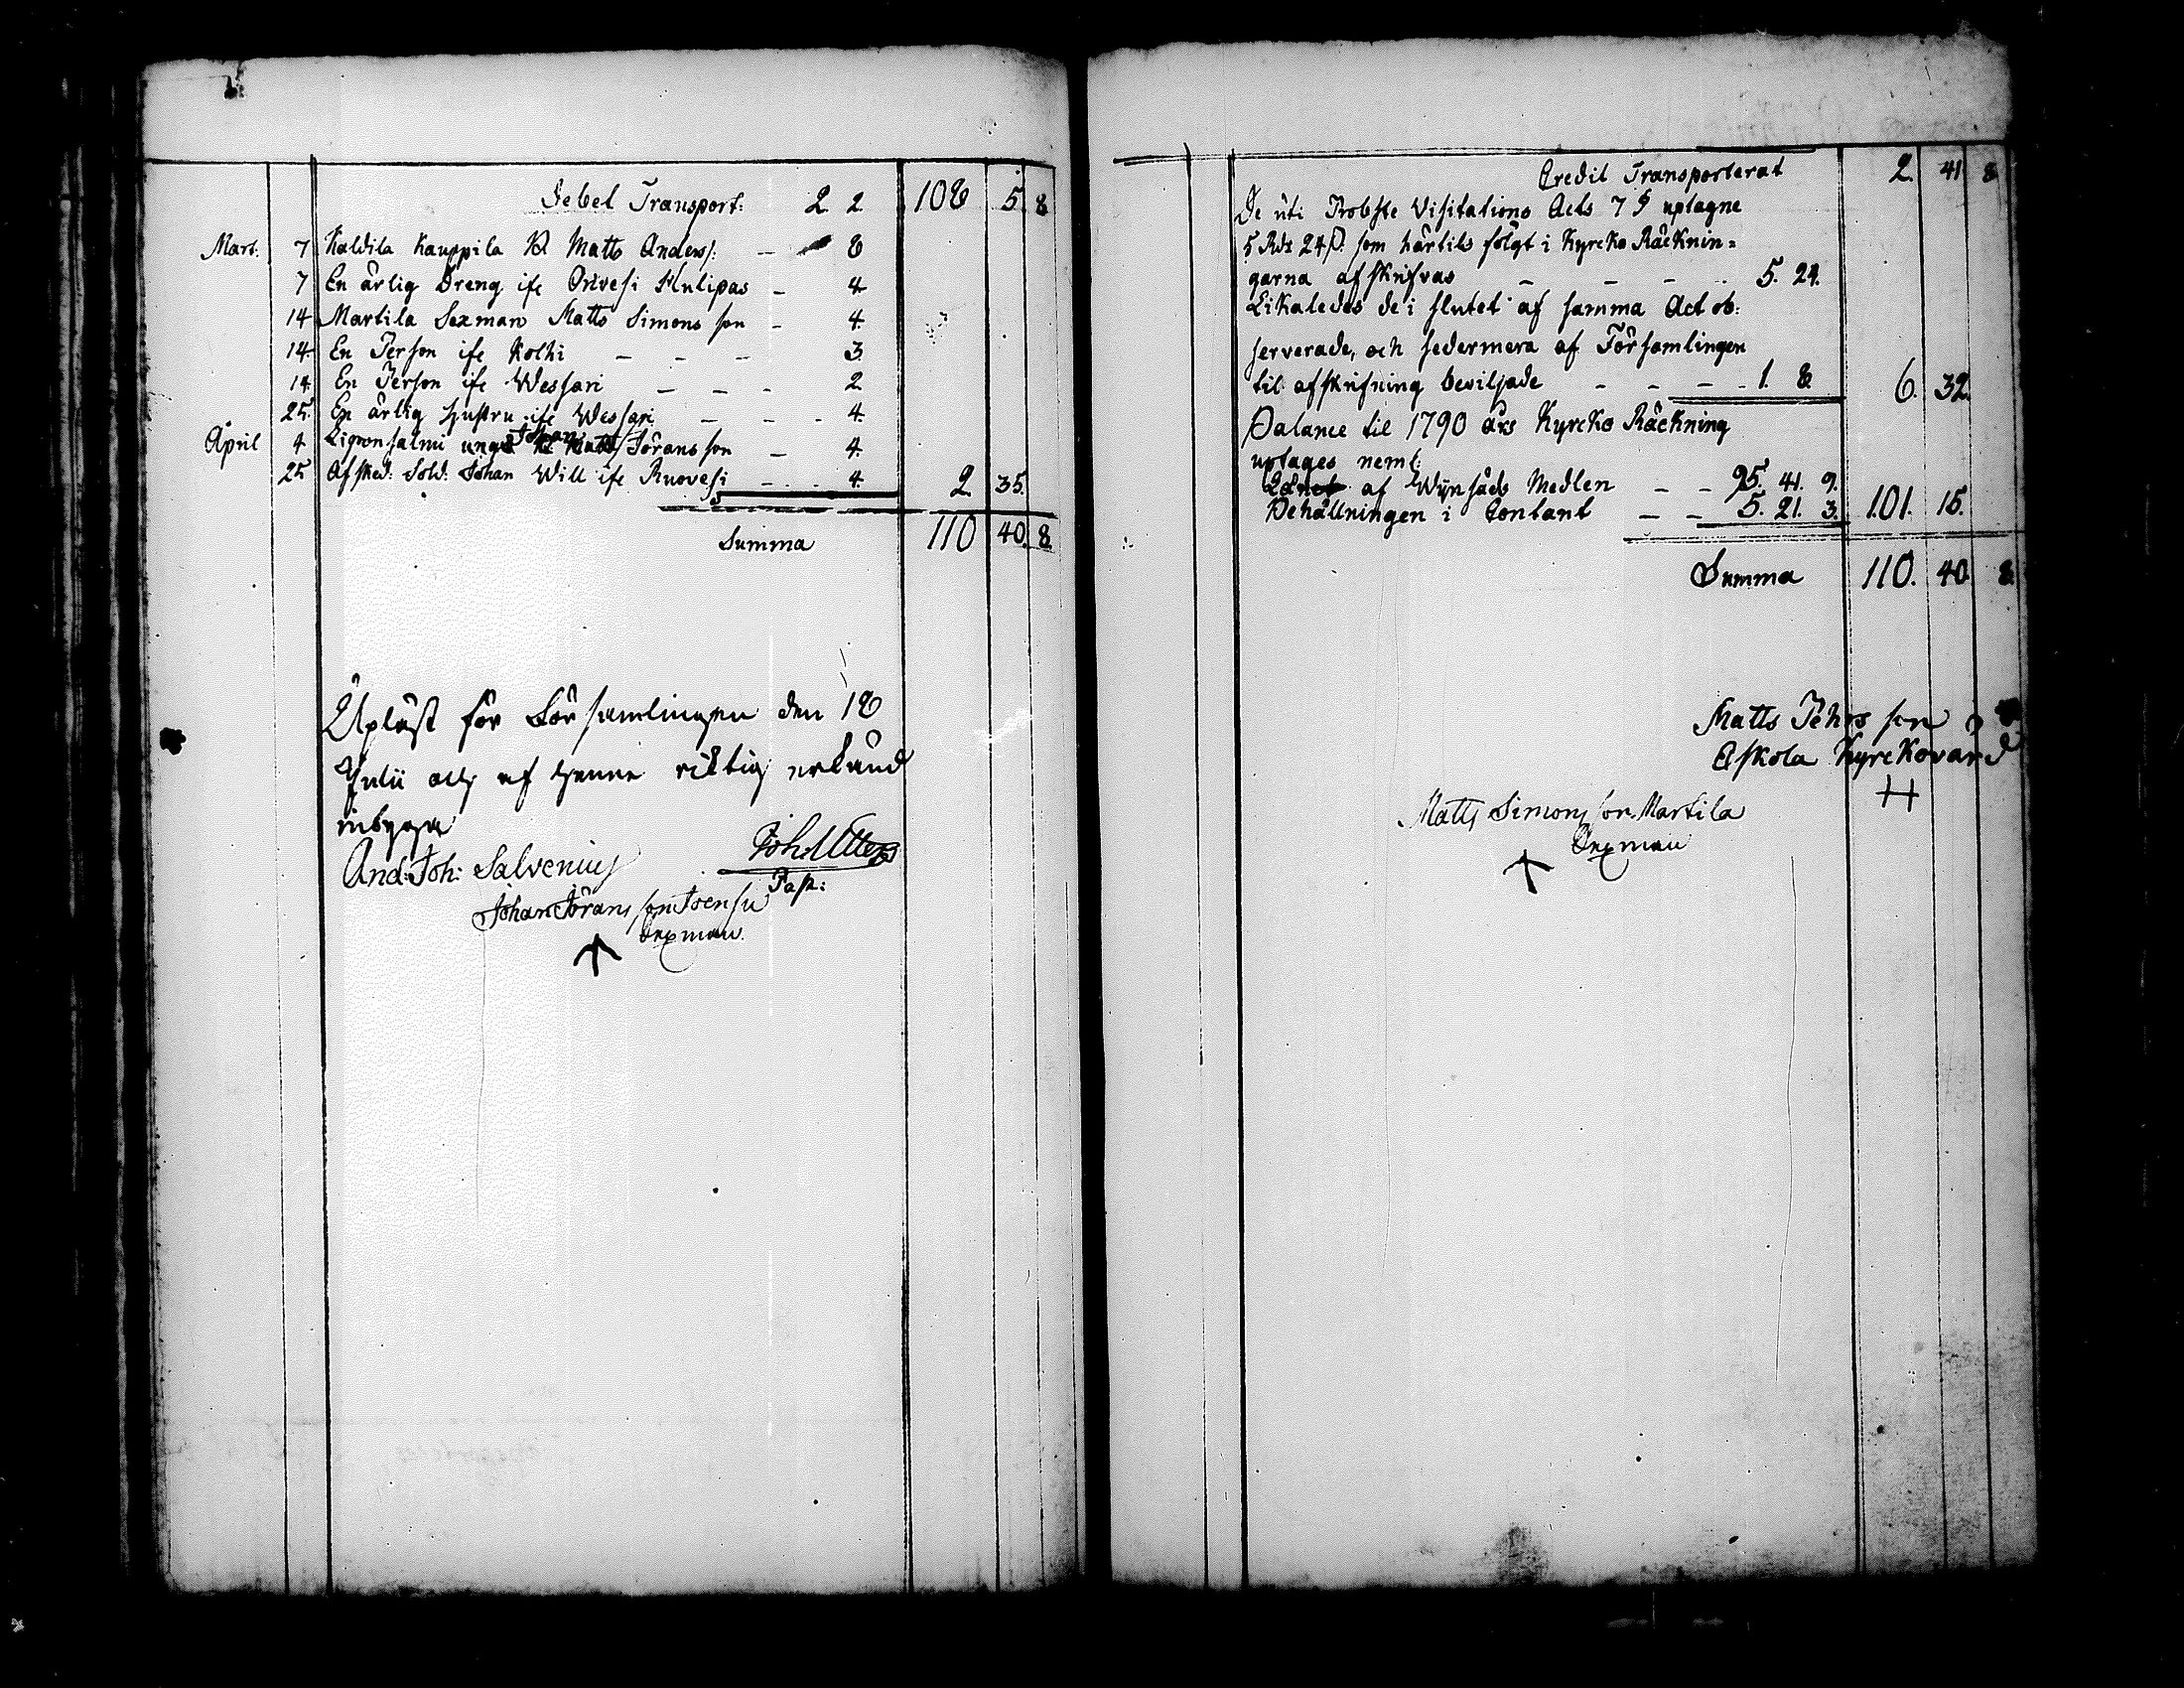 Debet Transport: 2. 2. 108 5. 8
Mart. 7 Kaldila Kauppila Matts Anders: — 8
7 En ärlig Dreng ifr Orivesi — 4
14 Martila Sexman Matts Simons son — 4.
14. En Person ifr Kolhi — — — 3.
14 En Person ifr Wessari — — — 2
25. En ärlig Hustru ifr Wessari — — — 4.
April 4 Lignonsalmi unge Johan Jöransson — 4.
25 Afsked: Sold: Johan Will ifr Ruovesi — — 4. 2. 35.
Summa 110 40. 8.
Upläst för Församlingen den 18
Julii och af henne riktig erkänd
intygar
And: Joh: Salvenius Joh: Utter
Past:
Johan Jörans son Joensu
Sexman.
Credit Transporterat 2. 41. 8
De uti Probste Visitations Acts 7 § uptagne
5 Rdr 24 ß. som härtils fölgt i Kyrcko Räcknin=
garna afskrifvas — — — 5. 24.
Likaledes de i slutet af samma Act ob:
serverade, och sedermera af Församlingen
til afskrifning beviljade — — — 1. 8. 6. 32.
Balance til 1790 års Kyrcko Räckning
uptages neml:
Lånet af Wynsads Medlen — — 95. 41. 9.
Behållningen i Contant — — 5. 21. 3. 101. 15.
Summa 110. 40. 8.
Matts Pehrs son
Askola Kyrckovärd
Matts Simons son Martila
Sexman